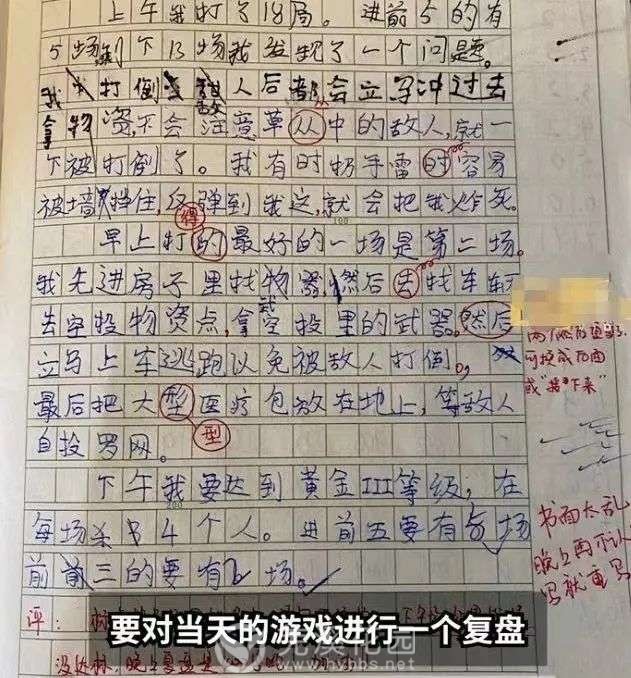 上午我打了18局。进前5的有
5场到下13场我发现了一个问题。
我打倒敌人后都会立马冲过去
拿物资,不会注意草从中的敌人,就一
丛
下被打倒了。我有时扔手雷时容易
被墙挡住,反弹到我这,就会把我炸死。
得
早上打的最好的一场是第二场。
我先进房子里找物器,然后去找车车
去空投物资点,拿空投里的武器。然后
武
立马上车逃跑以免被敌人打倒。
两个然后重复了
可换成后面
或"接下来"
最后把大型医疗包放在地上,等敌人
自投罗网。
型
下午我要达到黄金III等级,在
每场杀4个人。进前五要有5场
前三的要有2场。
书面太乱
晚上再不认
写就重写
评:
没达标
晚上复盘
要对当天的游戏进行一个复盘